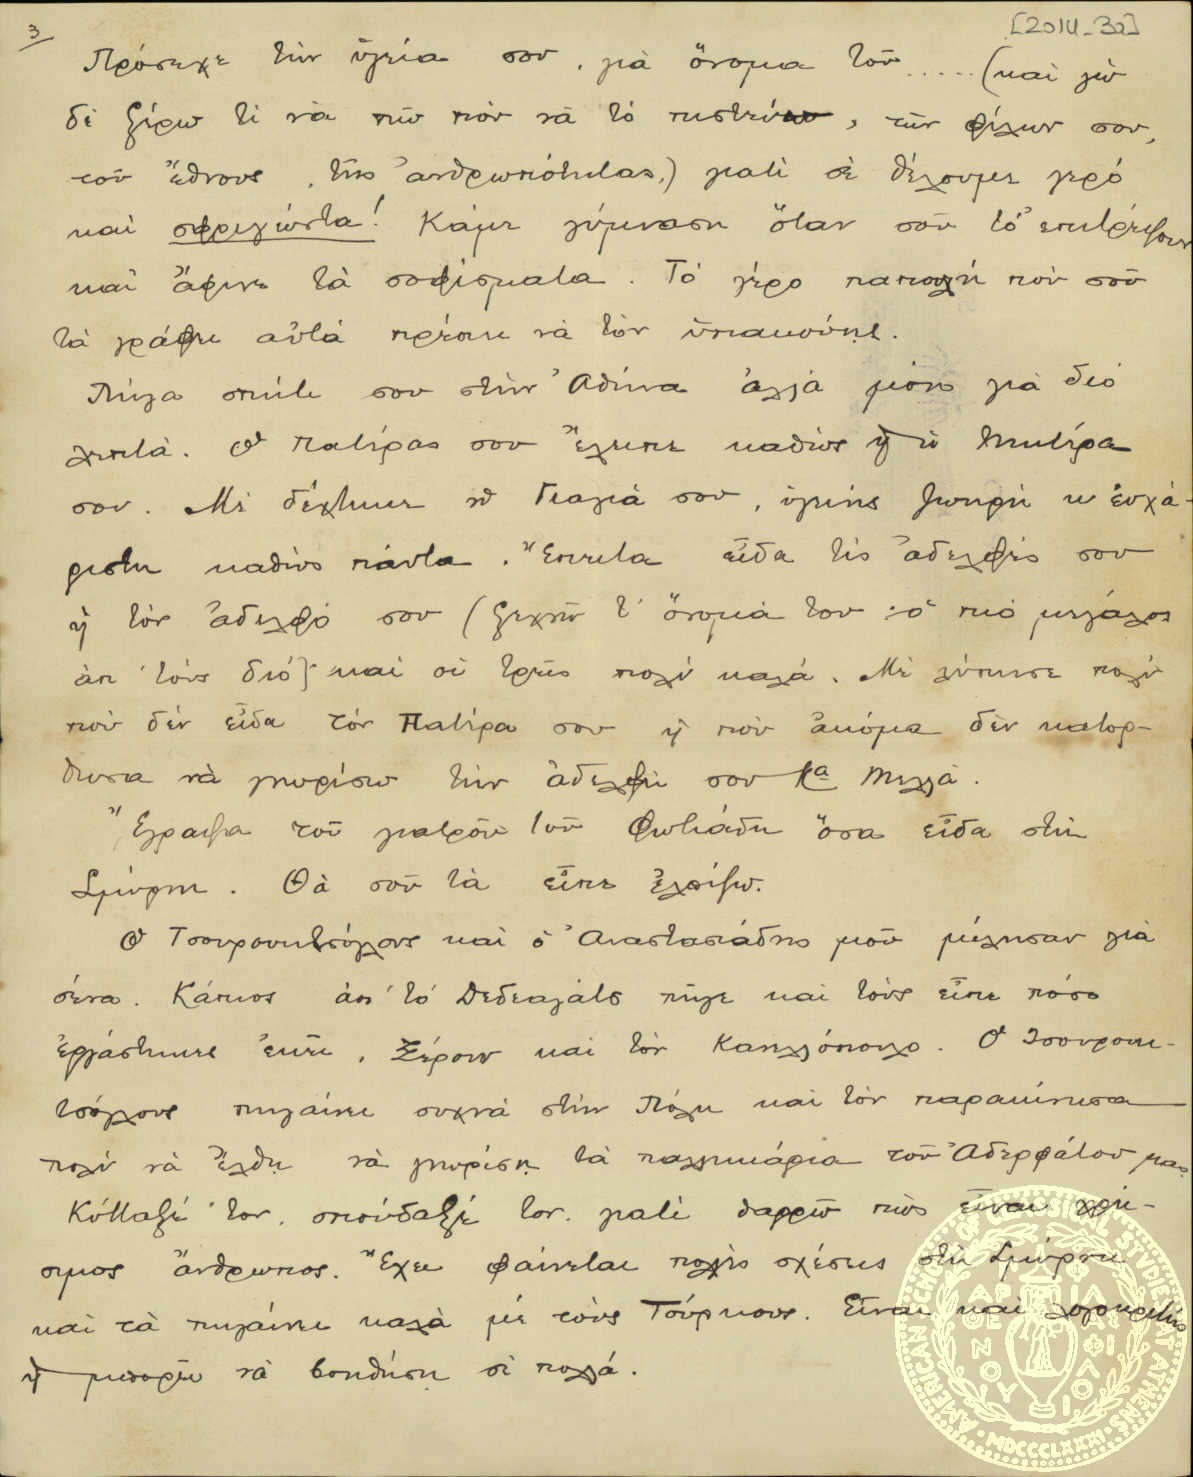 3
[2014_3α]
Πρόσεχε τὴν ὑγεία σου, γιὰ ὄνομα τοῦ ..... (καὶ γὼ
δὲ ξέρω τί νὰ πῶ ποὺ νὰ τὸ πιστεύω, τῶν φίλων σου,
τοῦ ἔθνους, τῆς ἀνθρωπότητας,) γιατὶ σὲ θέλουμε γερό
καὶ σφριγῶντα! Κάμε γύμναση ὅταν σοῦ τὸ ἐπιτρέψουν
καὶ ἄφινε τὰ σοφίσματα. Τὸ γέρο παπουλῆ ποὺ σοῦ
τὰ γράφει αὐτὰ πρέπει νὰ τὸν ὑπακούῃς.
Πῆγα σπίτι σου στὴν Ἀθήνα ἀλλὰ μόνο γιὰ διὸ
λεπτὰ. Ὁ Πατέρας σου ἔλειπε καθὼς κ ἡ Μητέρα
σου. Μὲ δέχτηκε ἡ Γιαγιά σου, ὑγιὴς ζωηρὴ κ εὐχά-
ριστη καθὼς πάντα. Ἔπειτα εἶδα τὶς ἀδελφές σου
κ τὸν ἀδελφό σου (ξεχνῶ τ' ὄνομά του : ὁ πιὸ μεγάλος
ἀπ' τοὺς διό) καὶ οἱ τρεῖς πολὺ καλά. Μὲ λύπησε πολὺ
ποὺ δὲν εἶδα τὸν Πατέρα σου κ ποὺ ἀκόμα δὲν κατόρ-
θωσα νὰ γνωρίσω τὴν ἀδελφή σου Κα Μελλᾶ.
Ἔγραψα τοῦ γιατροῦ τοῦ Φωτιάδη ὅσα εἶδα στὴ
Σμύρνη. Θὰ σοῦ τὰ εἶπε ἐλπίζω.
Ὁ Τσουρουκτσόγλους καὶ ὁ Ἀναστασιάδης μοῦ μίλησαν γιὰ
σένα. Κάποιος ἀπ' τὸ Δεδεαγὰτς πῆγε καὶ τοὺς εἶπε πόσο
ἐργάστηκες ἐκεῖ. Ξέρουν καὶ τὸν Καπλόπουλο. Ὁ Τσουρουκ-
τσόγλους πηγαίνει συχνὰ στὴν Πόλη καὶ τὸν παρακίνησα
πολὺ νὰ ἔλθῃ νὰ γνωρίσῃ τὰ παλληκάρια τοῦ Ἀδερφάτου μας.
Κύτταξέ τον, σπούδαξέ τον, γιατὶ θαρρῶ πὼς εἶναι χρή-
σιμος ἄνθρωπος. Ἔχει φαίνεται πολλὲς σχέσεις στὴ Σμύρνη
καὶ τὰ πηγαίνει καλὰ μὲ τοὺς Τούρκους. Εἶναι καὶ λογοκριτὴς
κ μπορεῖ νὰ βοηθήσῃ σὲ πολλά.
AMERICAN SCHOOL OF CLASSICAL STUDIES AT ATHENS
MDCCCLXXXI
ΠΑΡΘΕΝΟΥ ΦΙΛΟΙ